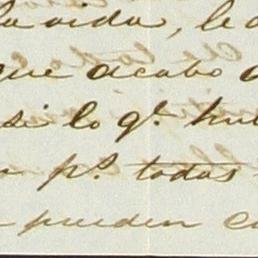 la vida, le
que acabo
si lo q.e hu
p.s todas
pueden co